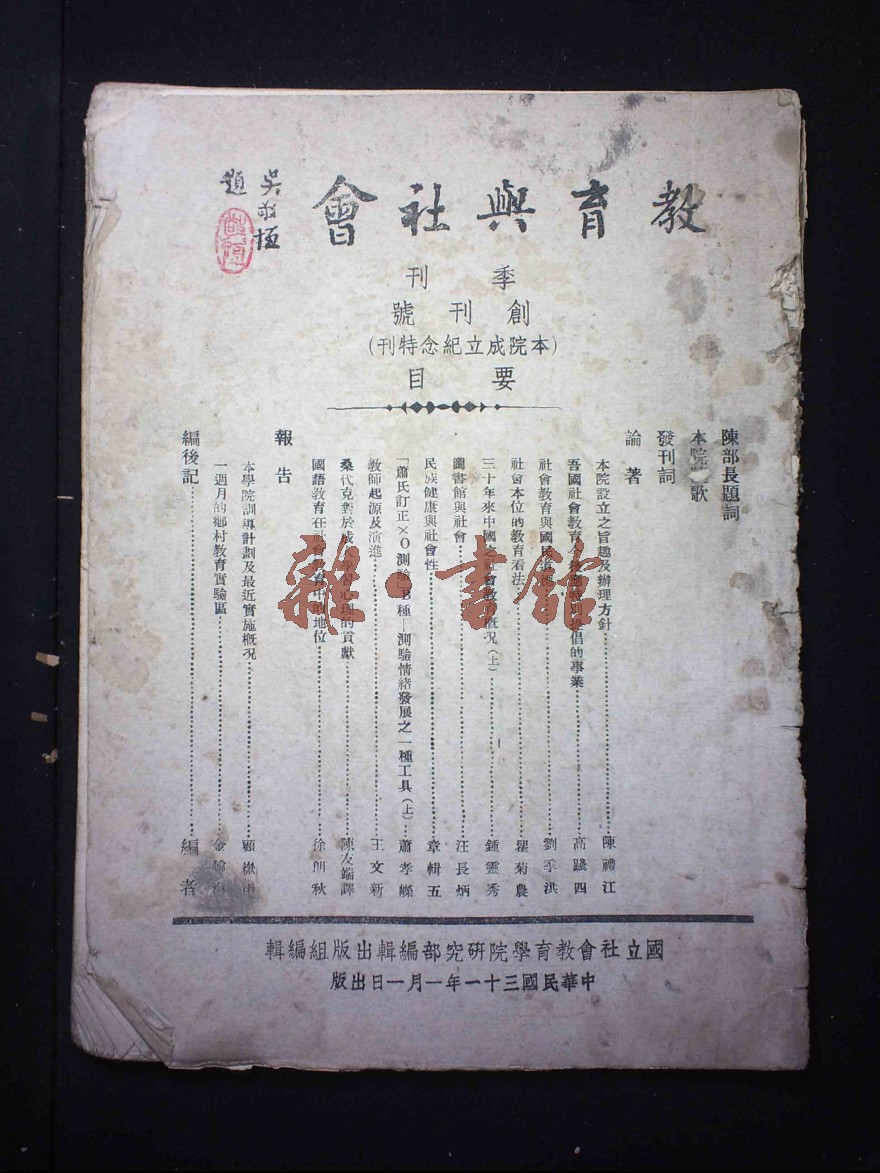 教育與社會
吳敬恆
題
季刊
創刊號
(本院成立紀念特刊)
要目
陳部長題詞
本院 歌
發刊詞
論著
本院設立之旨趣及辦理方針……陳禮江
吾國社會教育今後 倡的事業……高踐四
社會教育與國民道德……劉季洪
社會本位的教育看法……瞿菊農
三十年來中國之社會教育概況(上)……鍾靈秀
圖書館與社會……汪長炳
民族健康與社會性……章輯五
「蕭氏訂正×O測驗」B種—測驗情緒發展之一種工具(上)……蕭孝嶸
教師起源及演進……王文新
桑代克對於成 學習心理的貢獻……陳友端譯
國語教育在社會教育中的地位……徐朗秋
報告
本學院訓導計劃及最近實施概況……顧
一週月的鄉村教育實驗區……金
編後記……編者
國立社會教育學院研究部編輯出版組編輯
中華民國三十一年一月一日出版
雜·書館